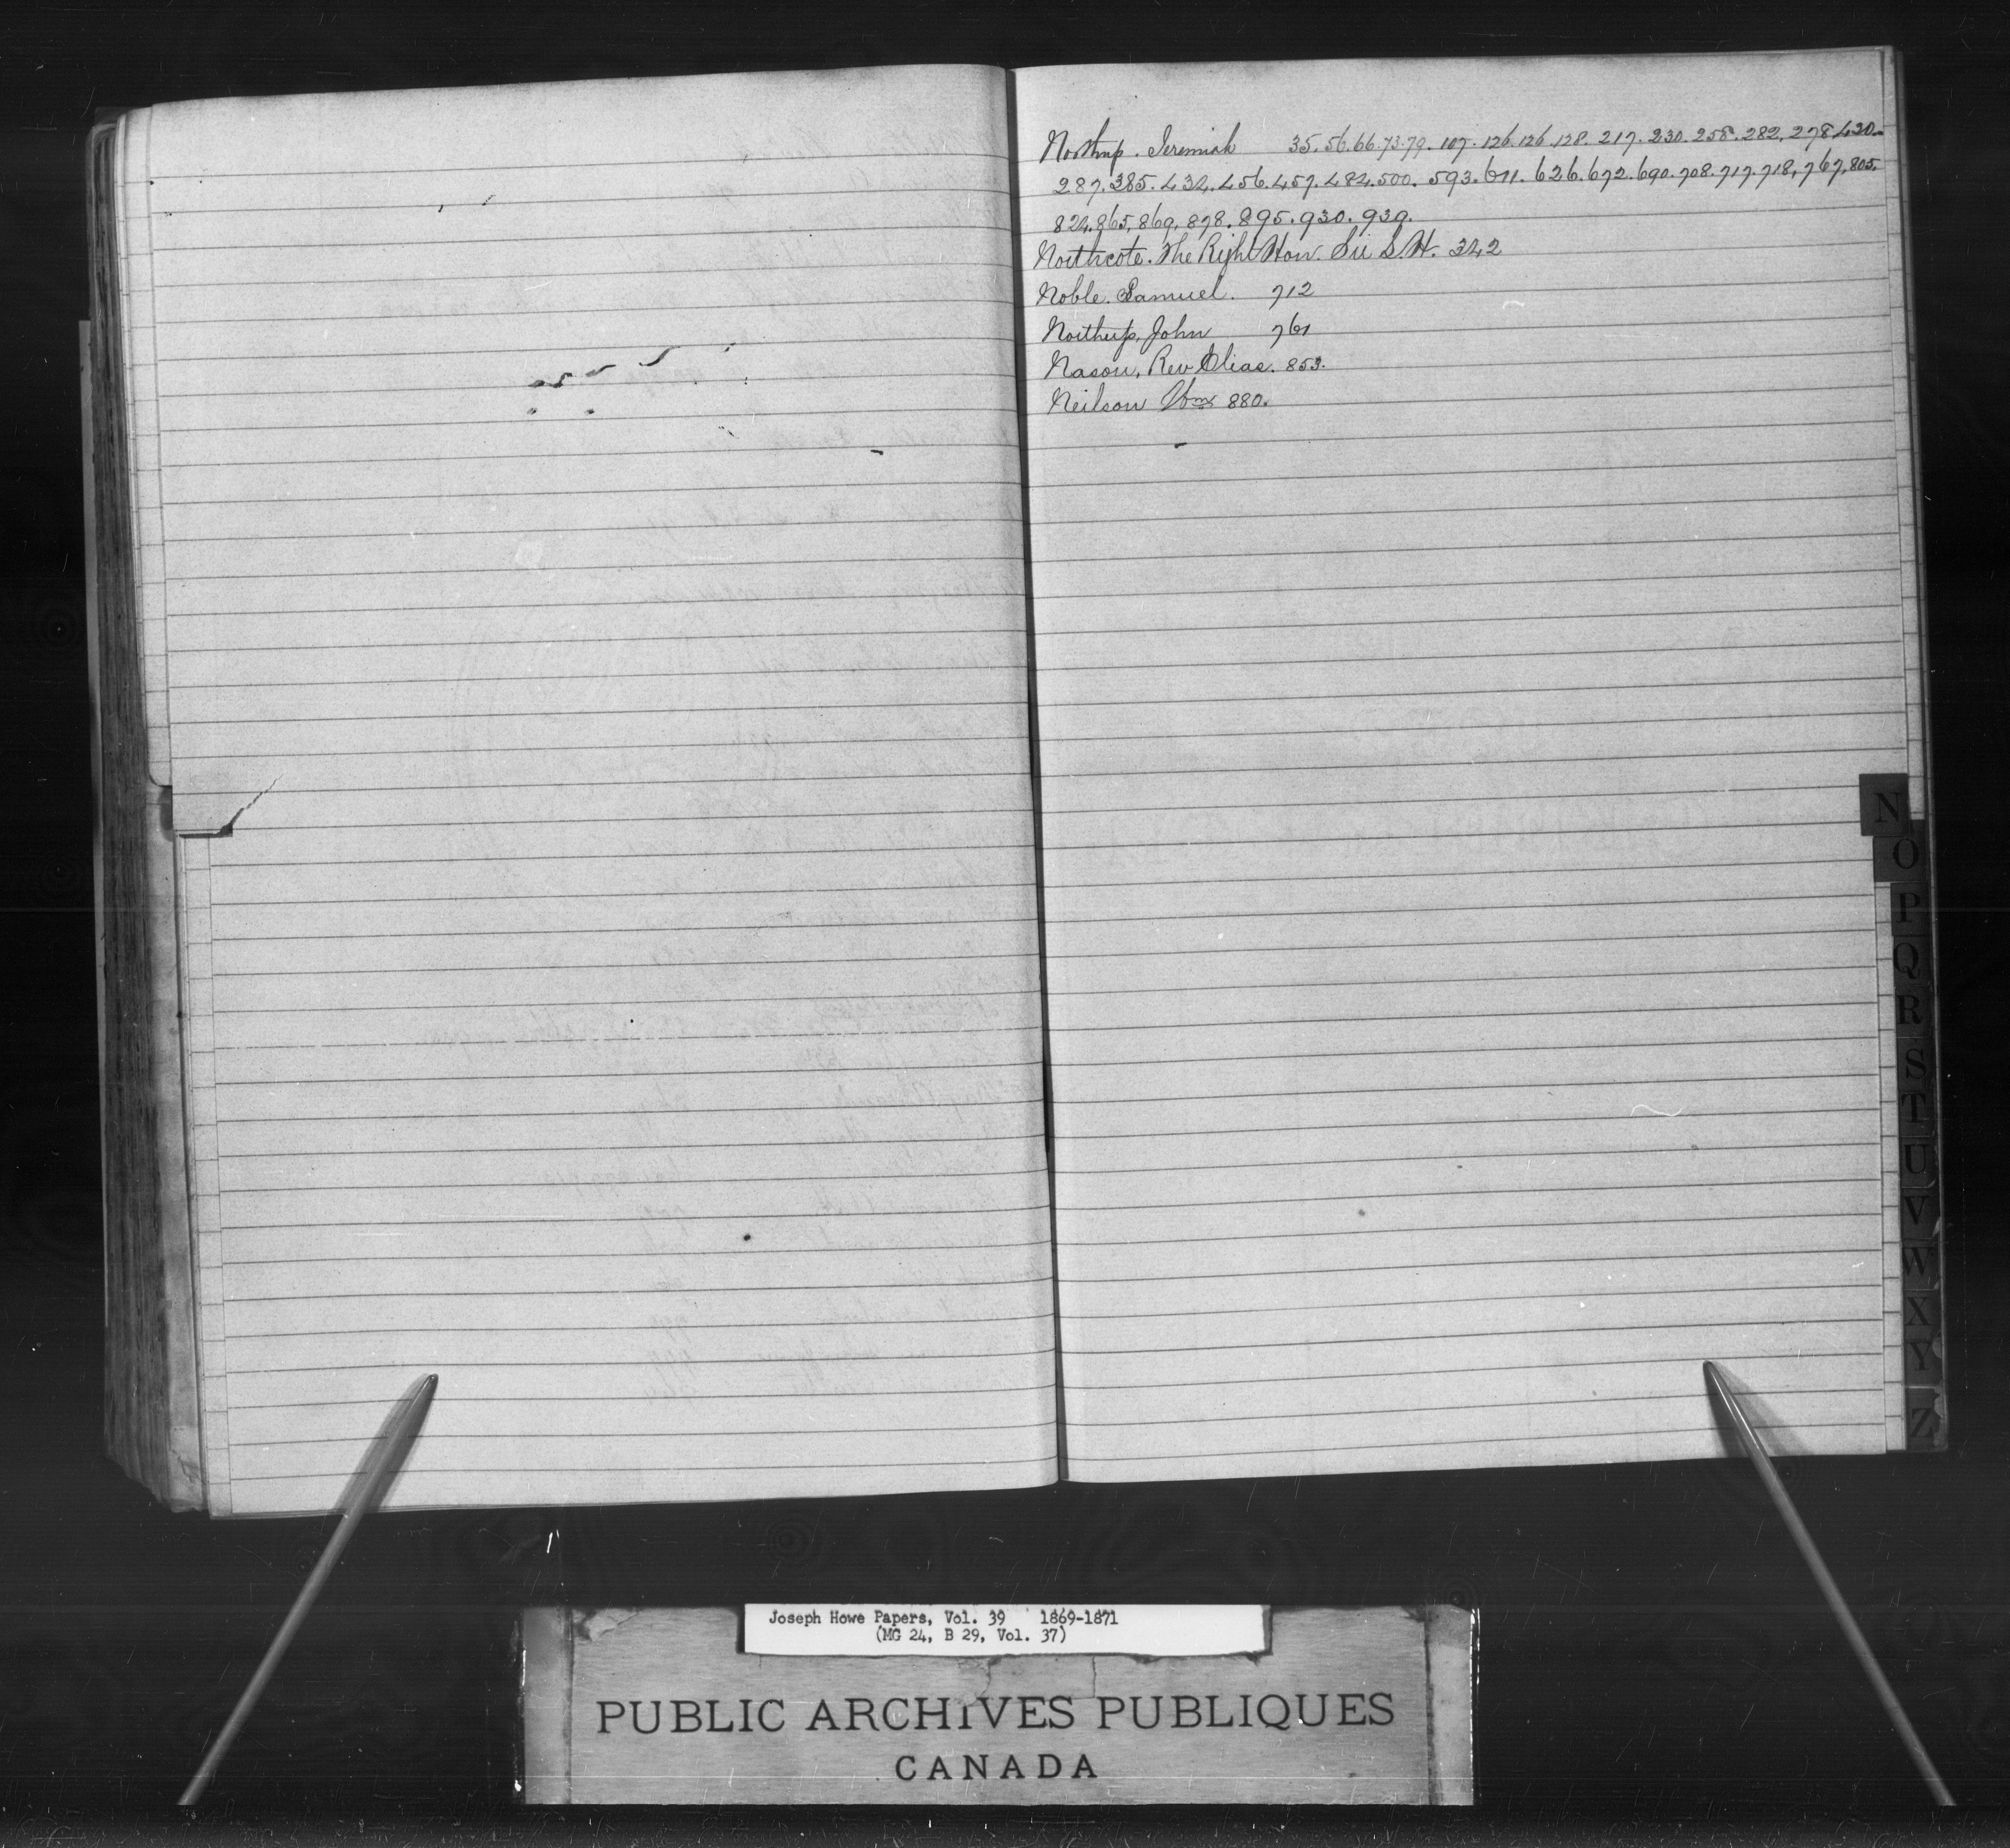 Northup. Jeremiah 35. 56. 66. 73. 79. 107. 126. 126. 128. 217. 230. 258. 282, 278, 420.
287. 385. 434. 456. 457. 484. 500. 593. 611. 626. 672. 690. 708. 717. 718, 767, 805.
824. 865, 869, 878. 895. 930. 939.
Northcote. The Right Hon. Sir S. H. 342
Noble. Samuel. 712
Northup, John 761
Nason, Rev Elias. 853.
Neilson Wm 880.
N
O
P
Q
R
S
T
U
V
W
X
Y
Z
Joseph Howe Papers, Vol. 39 1869-1871
(MG 24, B 29, Vol. 37)
PUBLIC ARCHIVES PUBLIQUES
CANADA